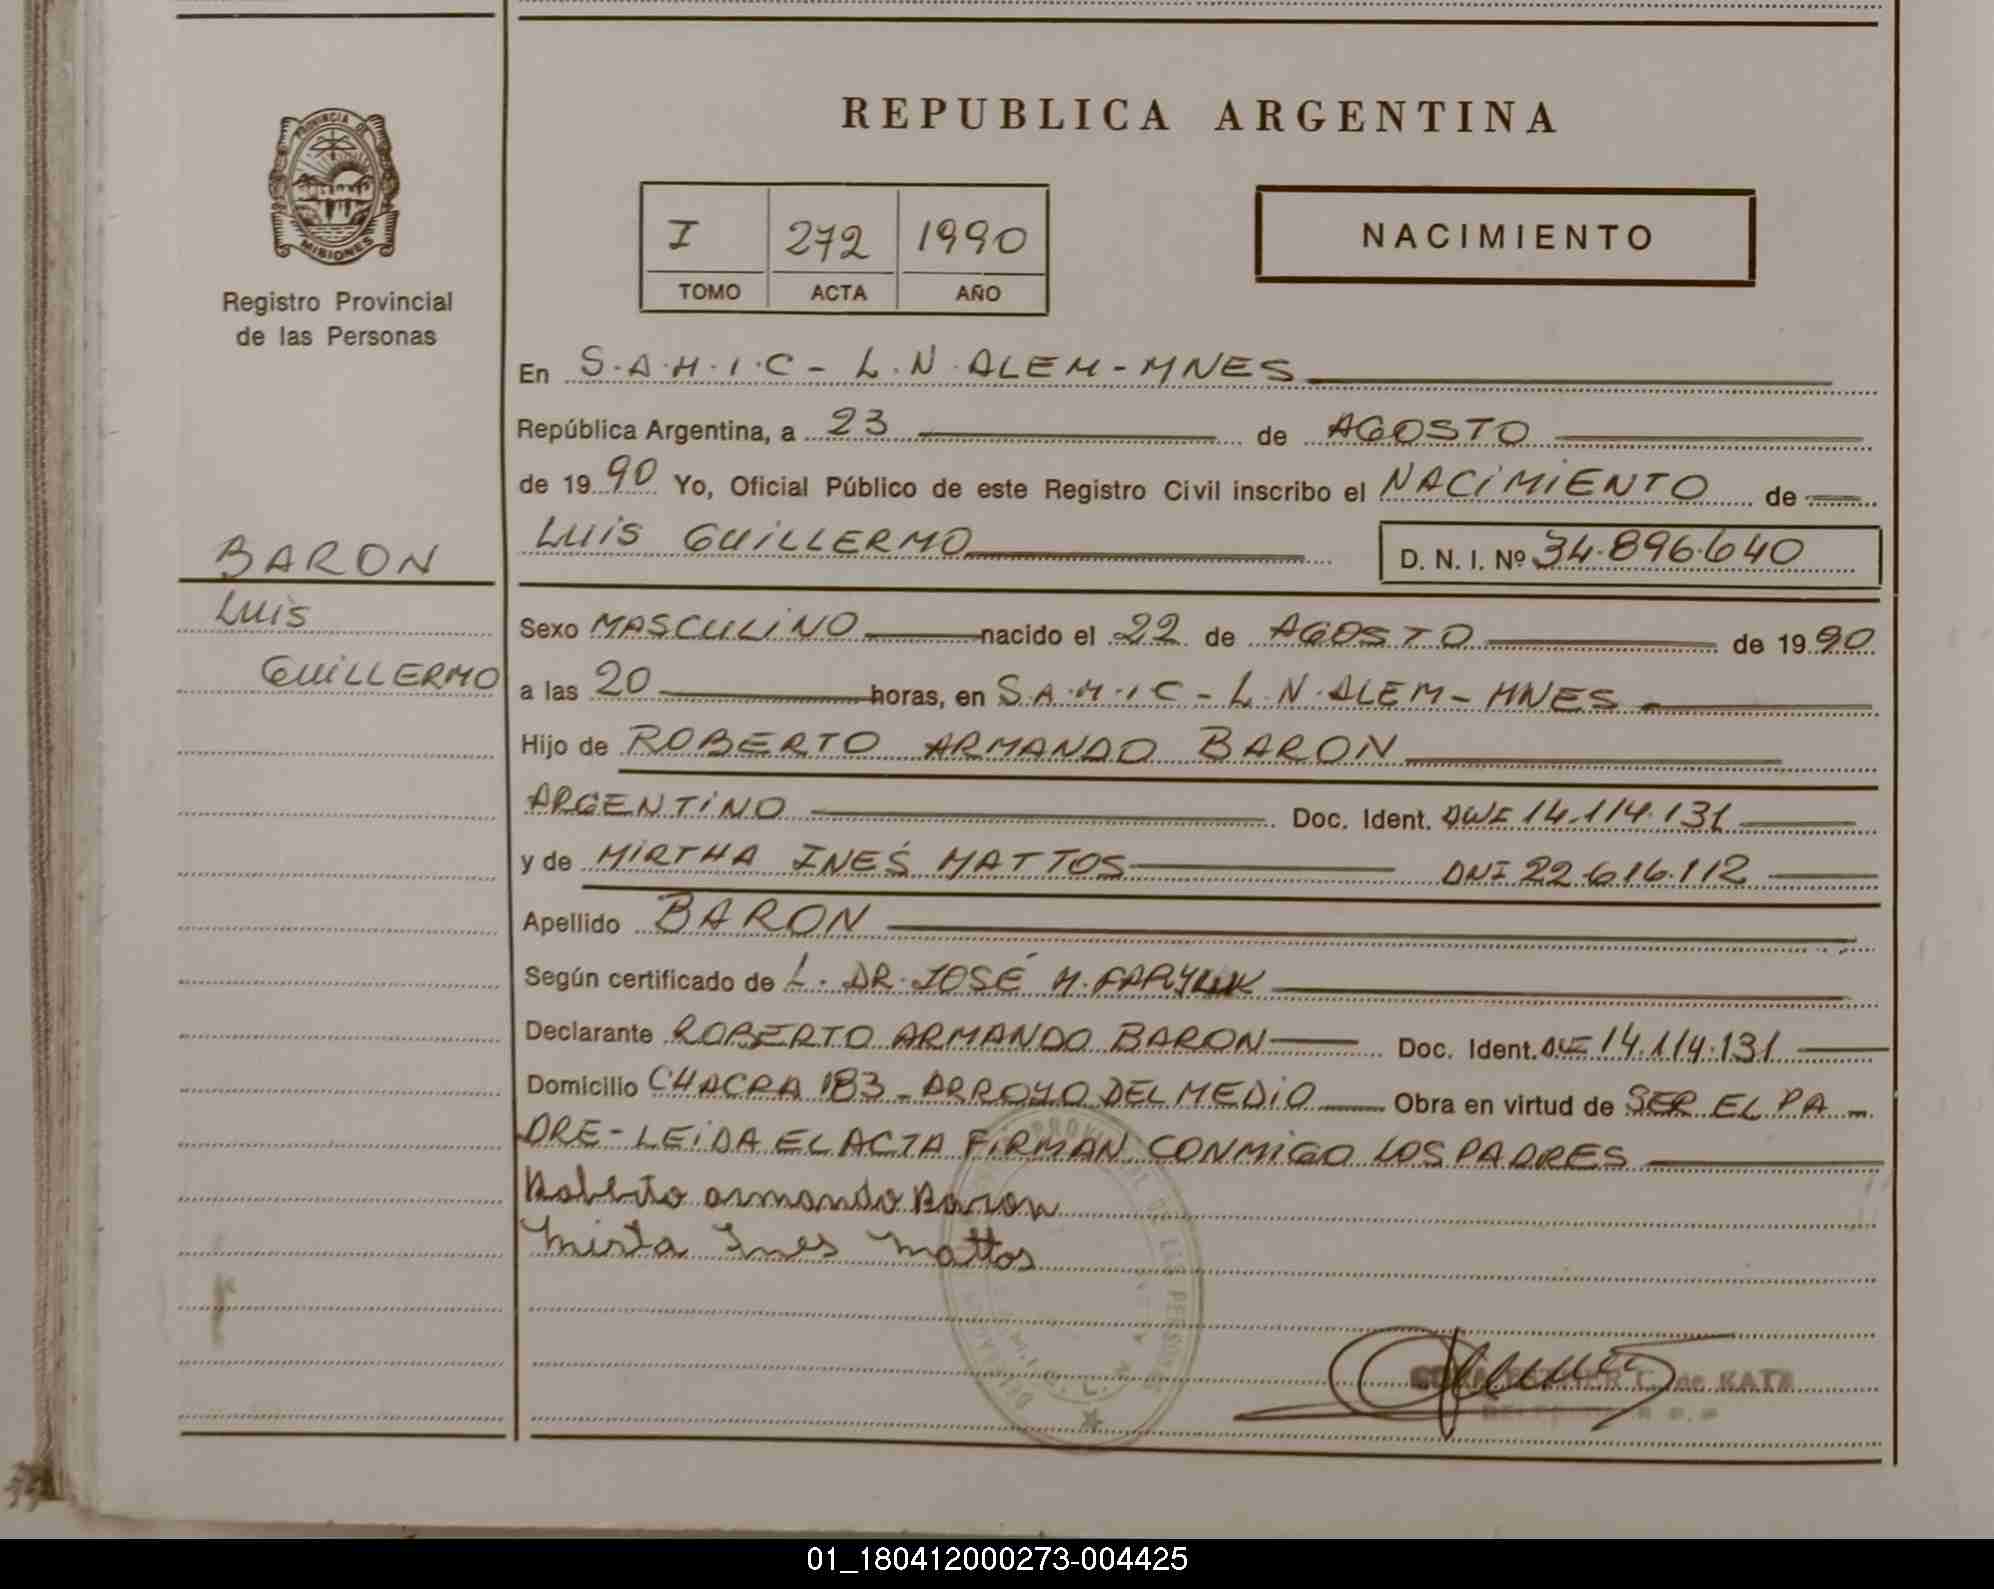 REPUBLICA ARGENTINA
PROVINCIA DE
MISIONES
Registro Provincial
de las Personas
I 272 1990
TOMO ACTA AÑO
NACIMIENTO
En S.A.M.I.C - L.N.ALEM-MNES
República Argentina, a 23 de AGOSTO
de 1990 Yo, Oficial Público de este Registro Civil inscribo el NACIMIENTO de
LUIS GUILLERMO D. N. I. Nº 34.896.640
BARON
LUIS
GUILLERMO
Sexo MASCULINO nacido el 22 de AGOSTO de 1990
a las 20 horas, en S.A.M.I C - L.N.ALEM-MNES
Hijo de ROBERTO ARMANDO BARON
ARGENTINO Doc. Ident. 14.114.131
y de MIRTHA INÉS MATTOS DNI 22.616.112
Apellido BARON
Según certificado de L. DR. JOSÉ M.
Declarante ROBERTO ARMANDO BARON Doc. Ident. 14.114.131
Domicilio CHACRA 183 - ARROYO DEL MEDIO Obra en virtud de SER EL PA
DRE - LEIDA EL ACTA FIRMAN CONMIGO LOS PADRES
Roberto armando Baron
Mirta Ines Mattos
de KATZ
01_180412000273-004425